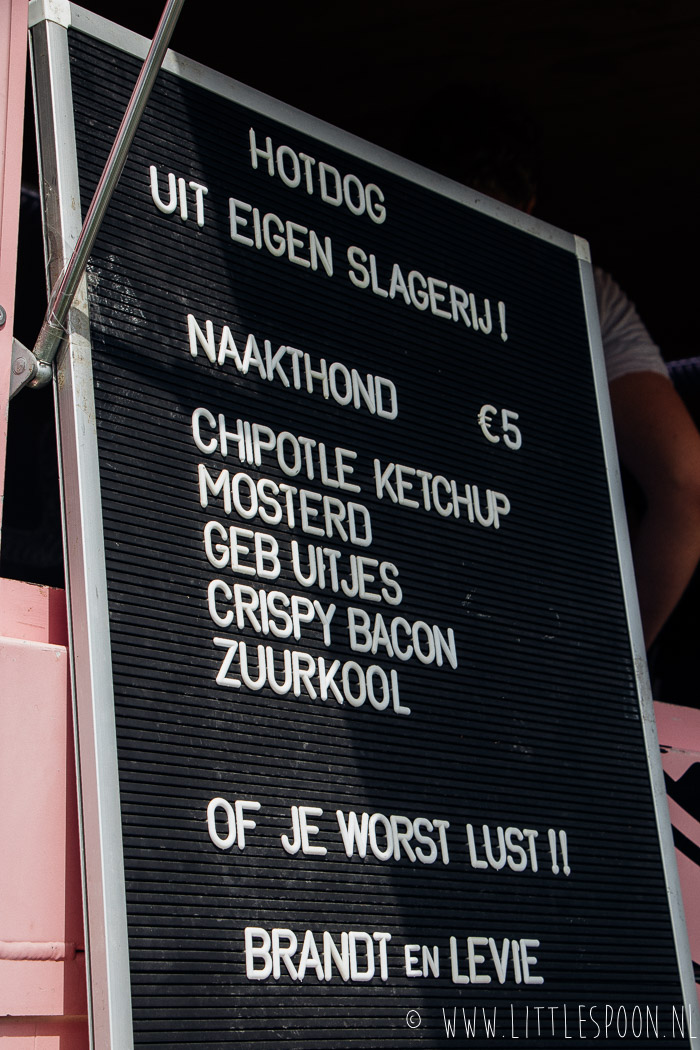 HOTDOG
UIT EIGEN SLAGERIJ!
NAAKTHOND €5
CHIPOTLE KETCHUP
MOSTERD
GEB UITJES
CRISPY BACON
ZUURKOOL
OF JE WORST LUST!!
BRANDT EN LEVIE
© WWW.LITTLESPOON.NL